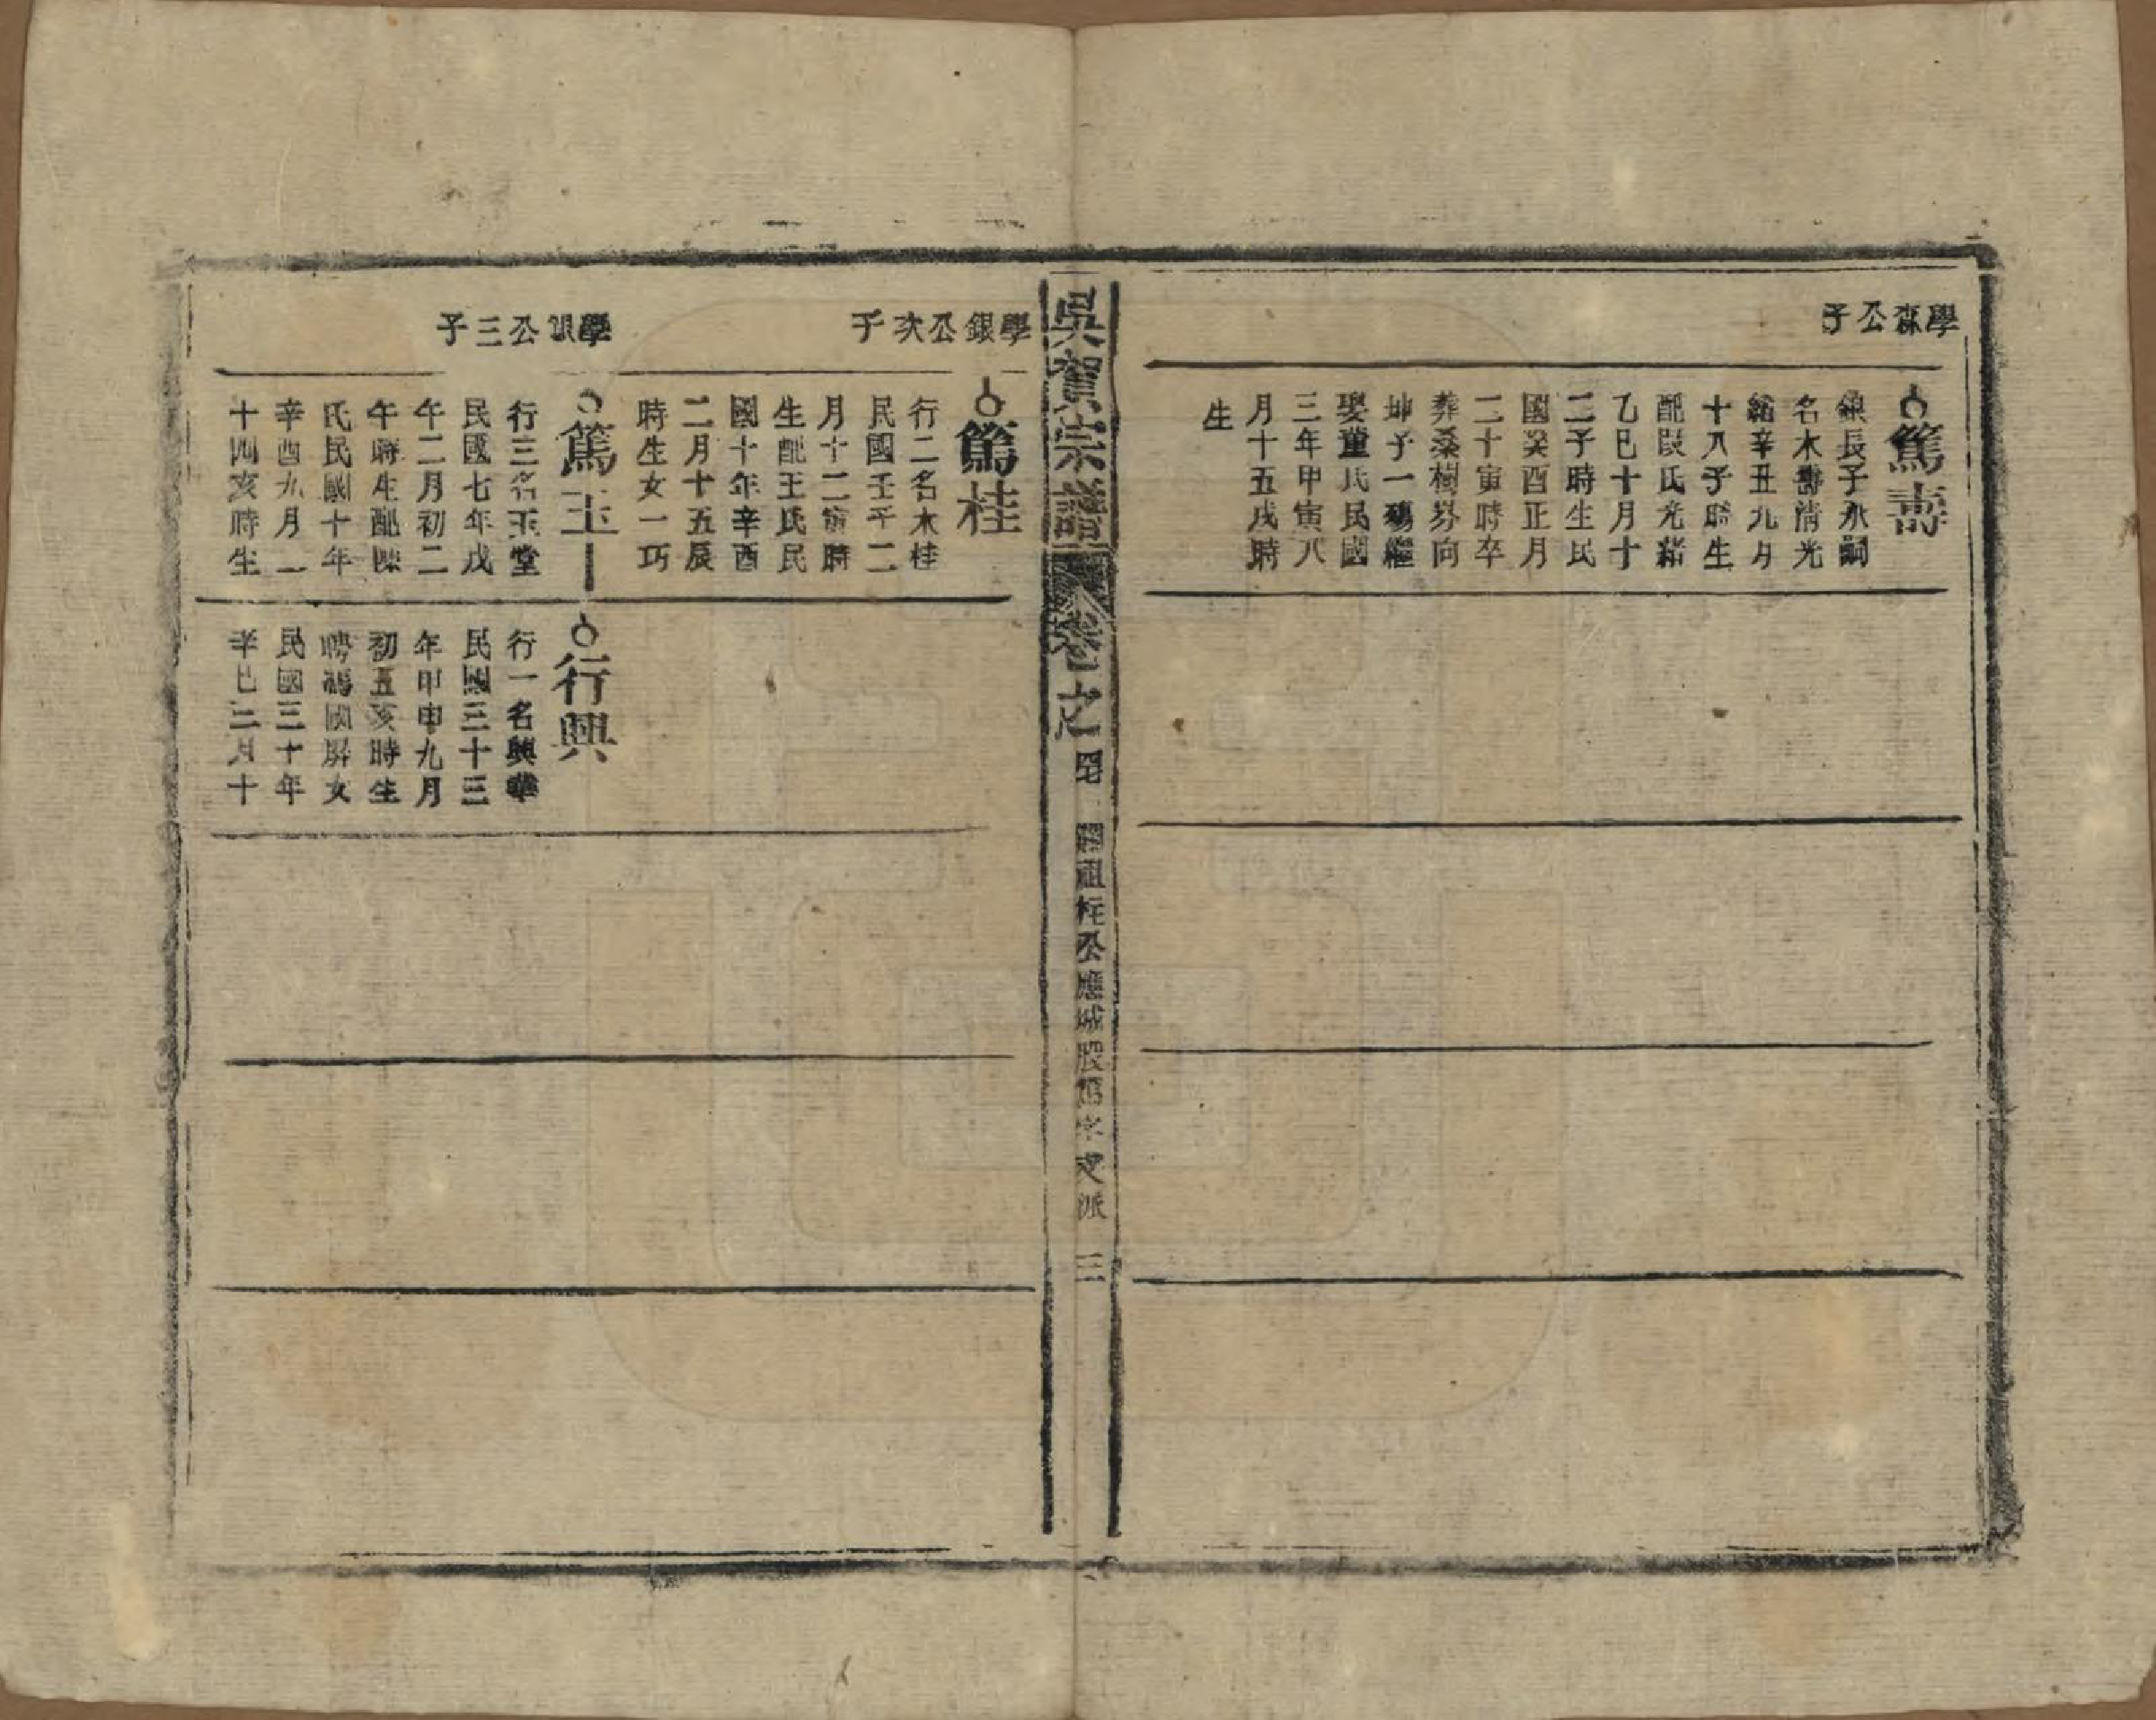 學森公子
篤壽
銀長子承嗣
名木壽清光
緒辛丑九月
十八子時生
配段氏光緒
乙巳十月十
二子時生民
國癸酉正月
二十寅時卒
葬桑樹堺向
坤子一殤繼
娶董氏民國
三年甲寅八
月十五戌時
生
吳賀宗譜
卷之四
興祖柱公應城股篤字支派
三
學銀公次子
篤桂
行二名木桂
民國壬子二
月十二寅時
生配王氏民
國十年辛酉
二月十五辰
時生女一巧
學銀公三子
篤玉
行三名玉堂
民國七年戊
午二月初二
午時生配陳
氏民國十年
辛酉九月二
十四亥時生
行興
行一名興華
民國三十三
年甲申九月
初五亥時生
聘馮國屏女
民國三十年
辛巳二月十